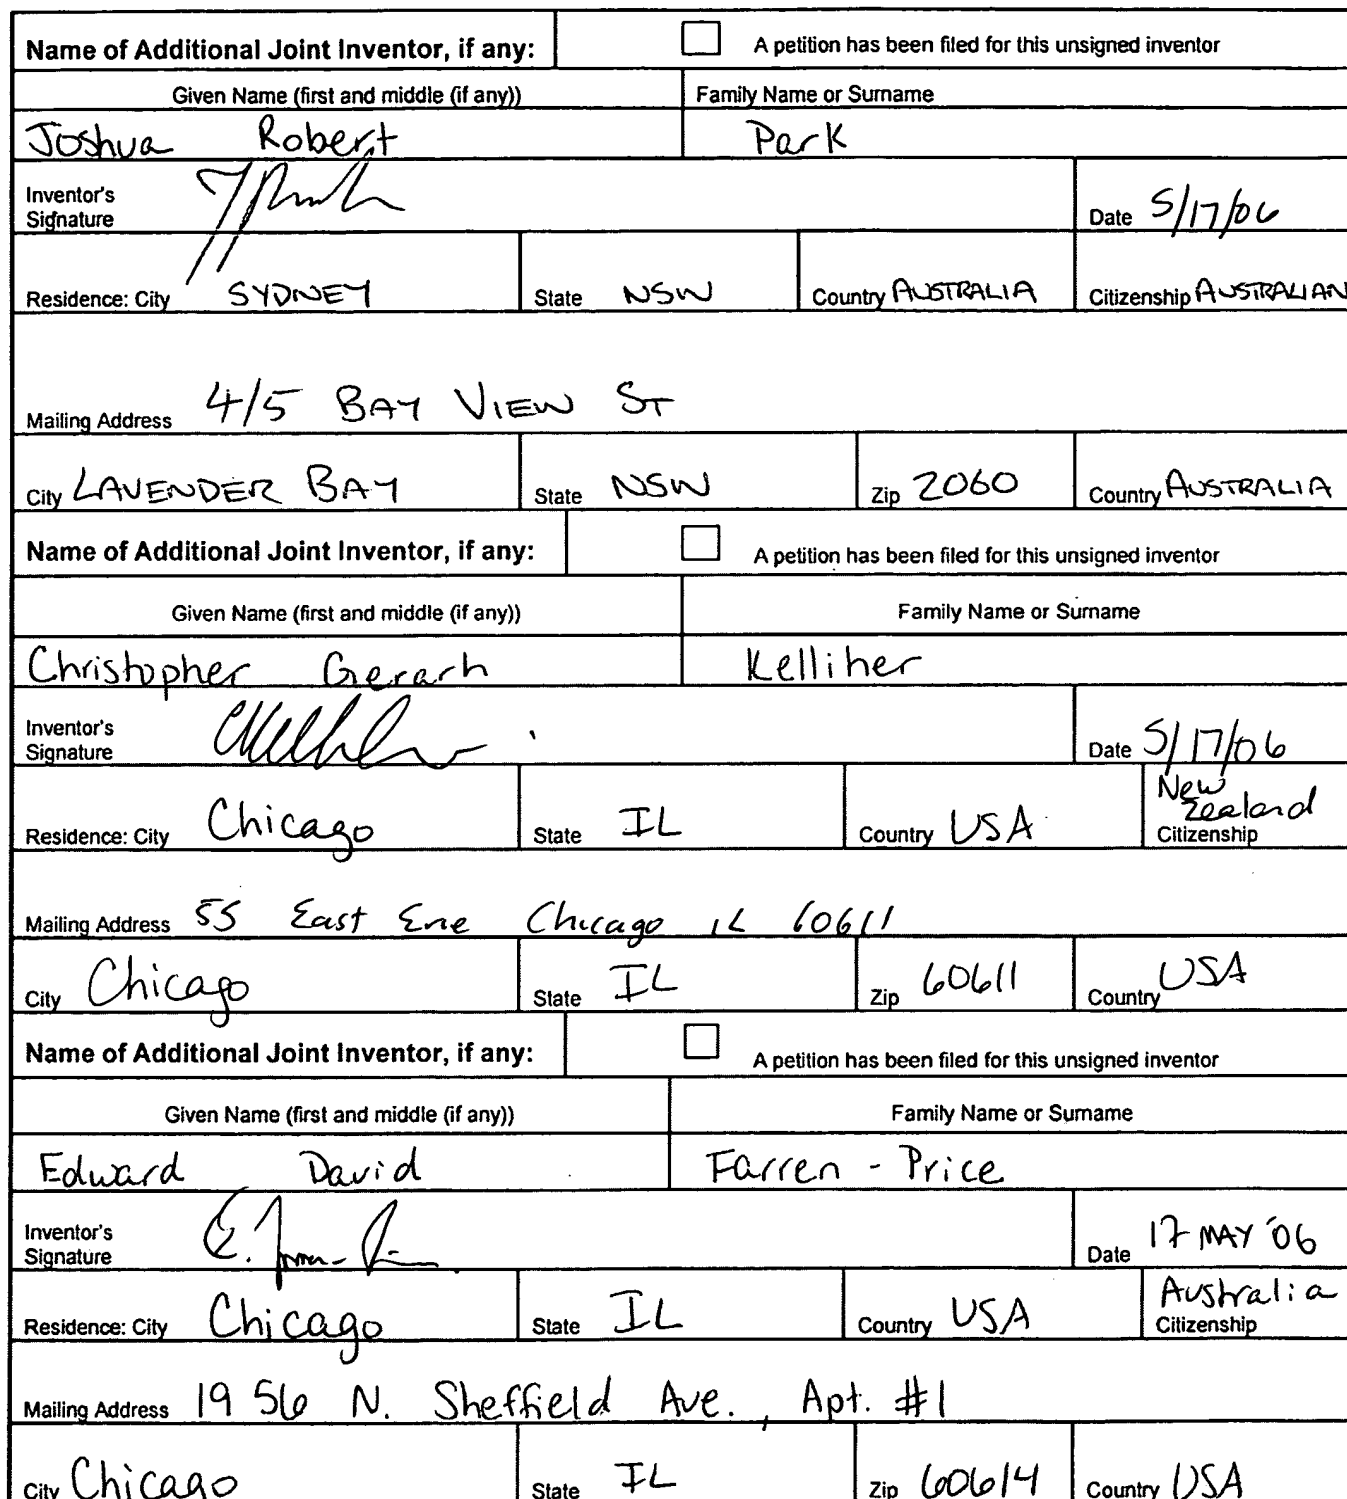 Name of Additional Joint Inventor, if any: A petition has been filed for this unsigned inventor
Given Name (first and middle (if any)) Family Name or Surname
Joshua Robert Park
Inventor's
Signature Date 5/17/06
Residence: City SYDNEY State NSW Country AUSTRALIA Citizenship AUSTRALIAN
Mailing Address 4/5 BAY VIEW ST
City LAVENDER BAY State NSW Zip 2060 Country AUSTRALIA
Name of Additional Joint Inventor, if any: A petition has been filed for this unsigned inventor
Given Name (first and middle (if any)) Family Name or Surname
Christopher Kelliher
Inventor's
Signature Date 5/17/06
New
Zealand
Residence: City Chicago State IL Country USA Citizenship
Mailing Address 55 East Erie Chicago IL 60611
City Chicago State IL Zip 60611 Country USA
Name of Additional Joint Inventor, if any: A petition has been filed for this unsigned inventor
Given Name (first and middle (if any)) Family Name or Surname
Edward David Farren - Price
Inventor's
Signature Date 17 MAY '06
Australia
Residence: City Chicago State IL Country USA Citizenship
Mailing Address 1956 N. Sheffield Ave., Apt. #1
City Chicago State IL Zip 60614 Country USA